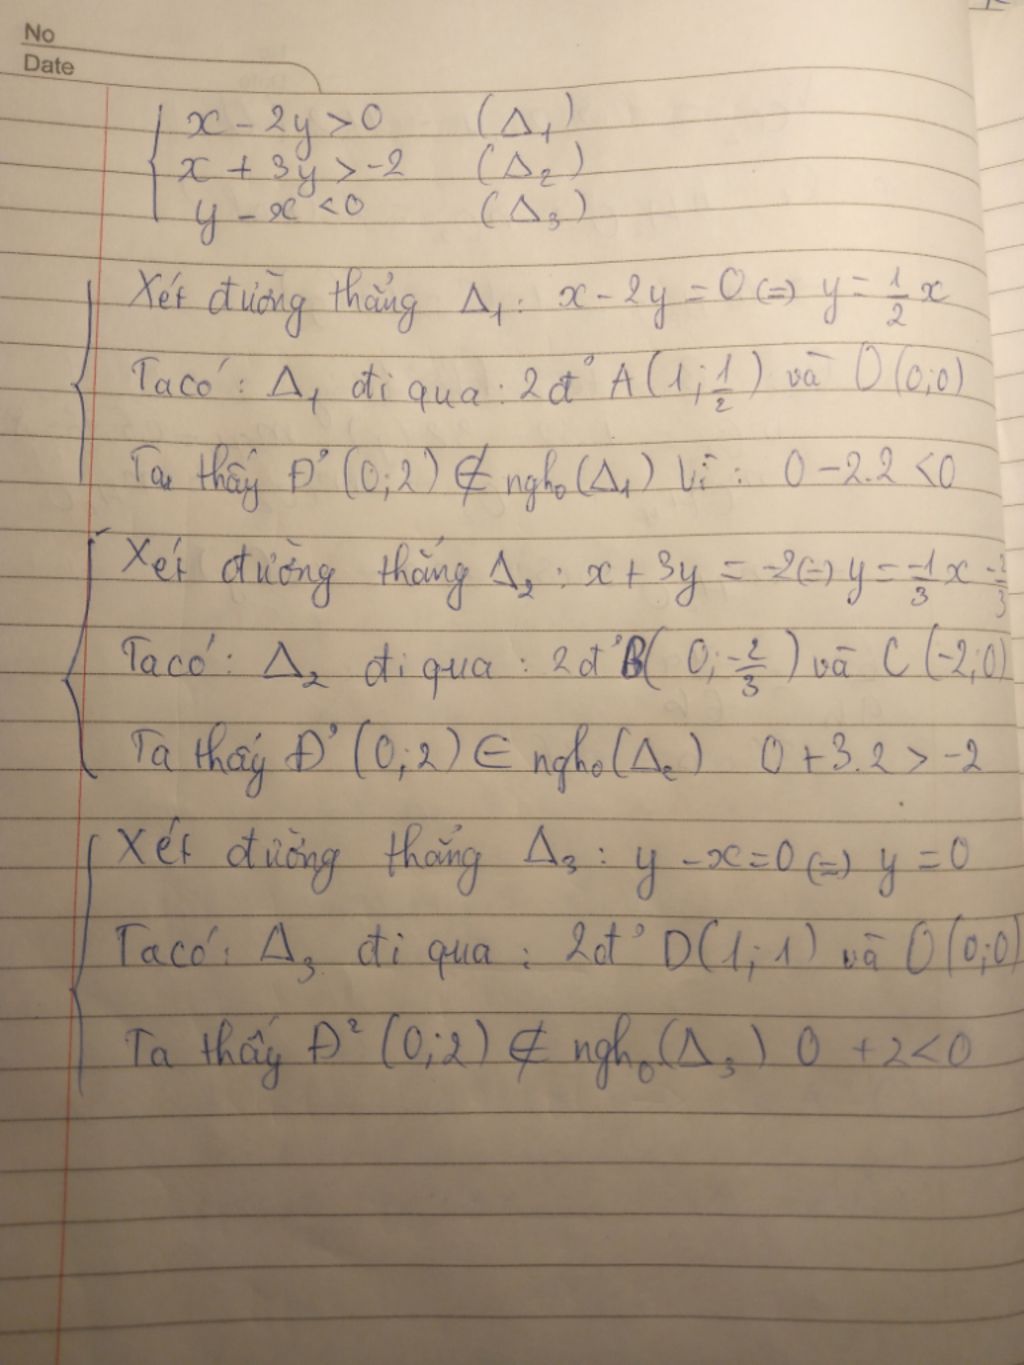 No
Date
x - 2y > 0 (Δ₁)
x + 3y > -2 (Δ₂)
y - x < 0 (Δ₃)
Xét đường thẳng Δ₁: x - 2y = 0 (=) y = 1/2 x
Ta có: Δ₁ đi qua: 2đ' A(1; 1/2) và O(0;0)
Ta thấy Đ'(0;2) ∉ ngho(Δ₁) Vì: 0 - 2.2 < 0
Xét đường thẳng Δ₂: x + 3y = -2 (=) y = -1/3 x - 2/3
Ta có: Δ₂ đi qua: 2đ' B(0; -2/3) và C(-2;0)
Ta thấy Đ'(0;2) ∈ ngho(Δ₂) 0 + 3.2 > -2
Xét đường thẳng Δ₃: y - x = 0 (=) y = 0
Ta có: Δ₃ đi qua: 2đ' D(1;1) và O(0;0)
Ta thấy Đ²(0;2) ∉ ngho(Δ₃) 0 + 2 < 0